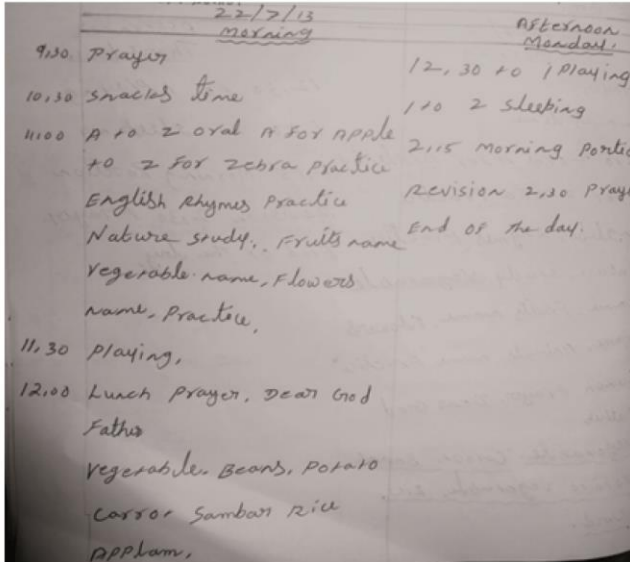 22/7/13
Morning
9,30 Prayer
10,30 Snacks time
11:00 A to Z oral A for Apple
to Z for Zebra Practice
English Rhymes Practice
Nature study. Fruits name
Vegetable name, Flowers
Name, Practice,
11,30 Playing,
12,00 Lunch Prayer, Dear God
Father
Vegetable. Beans, Potato
Carrot Sambar Rice
Applam,
Afternoon
Monday.
12,30 to 1 Playing
1 to 2 Sleeping
2,15 Morning Portio
Revision 2,30 Praye
End of the day.